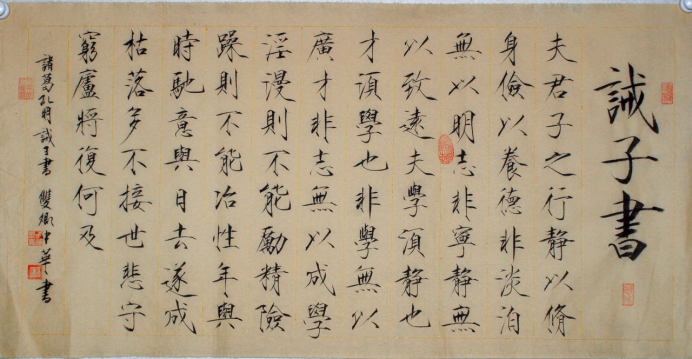 誡子書
夫君子之行靜以脩
身儉以養德非淡泊
無以明志非寧靜無
以致遠夫學須靜也
才須學也非學無以
廣才非志無以成學
淫漫則不能勵精險
躁則不能冶性年與
時馳意與日去遂成
枯落多不接世悲守
窮廬將復何及
諸葛孔明誡子書 雙卿中華書